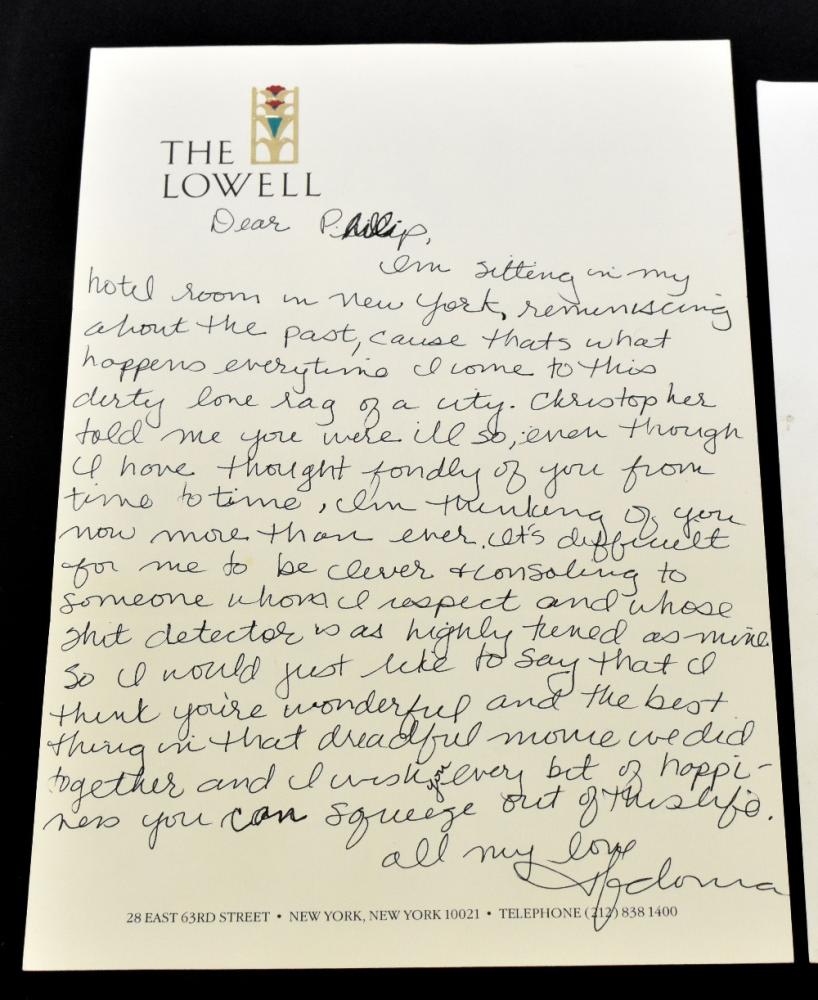 THE
LOWELL
Dear Phillip,
Im sitting in my
hotel room in New York, reminiscing
about the past, cause thats what
happens everytime I come to this
dirty lone rag of a city. Christopher
told me you were ill so, even though
I have thought fondly of you from
time to time, Im thinking of you
now more than ever. It's difficult
for me to be clever + consoling to
someone whom I respect and whose
shit detector is as highly tuned as mine
So I would just like to say that I
think you're wonderful and the best
thing in that dreadful movie we did
together and I wish you every bit of happi-
ness you can squeeze out of this life.
all my love
Madonna
28 EAST 63RD STREET • NEW YORK, NEW YORK 10021 • TELEPHONE (212) 838 1400